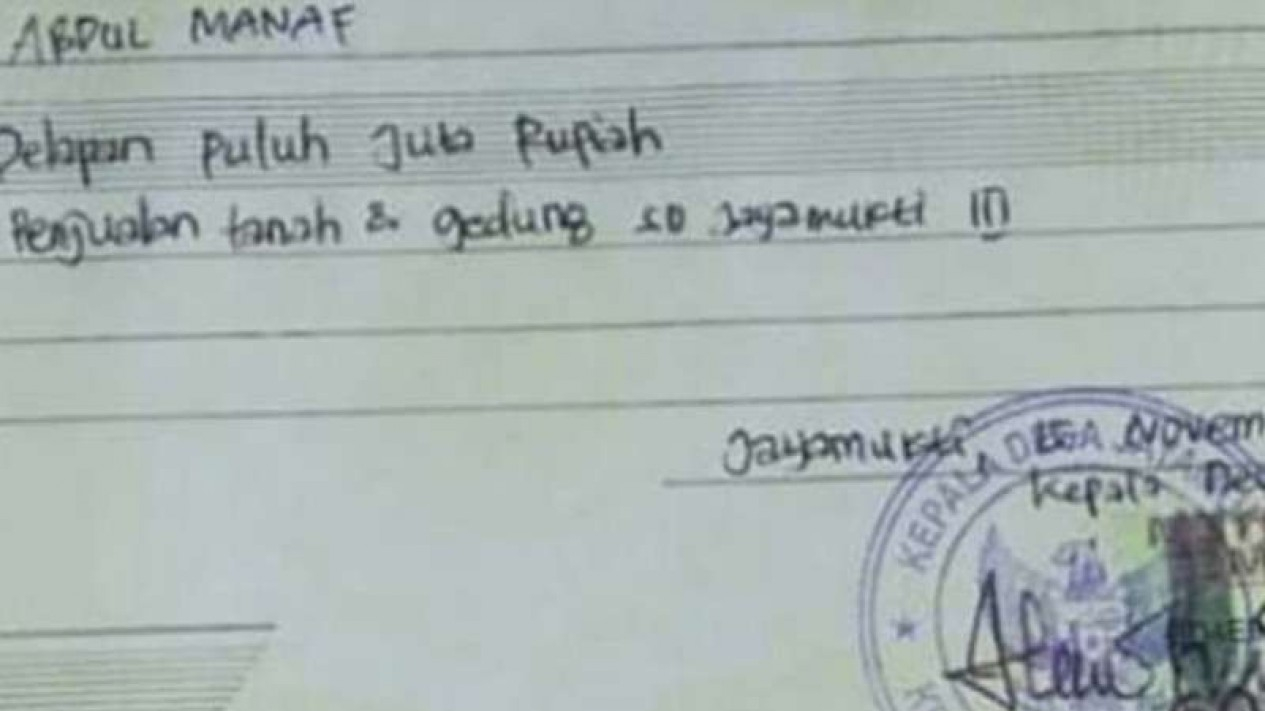 ABDUL MANAF
Delapan puluh Juta Rupiah
Penjualan tanah & gedung SD Jayamukti III
Jayamukti, Novem
Kepala Des
KEPALA DESA